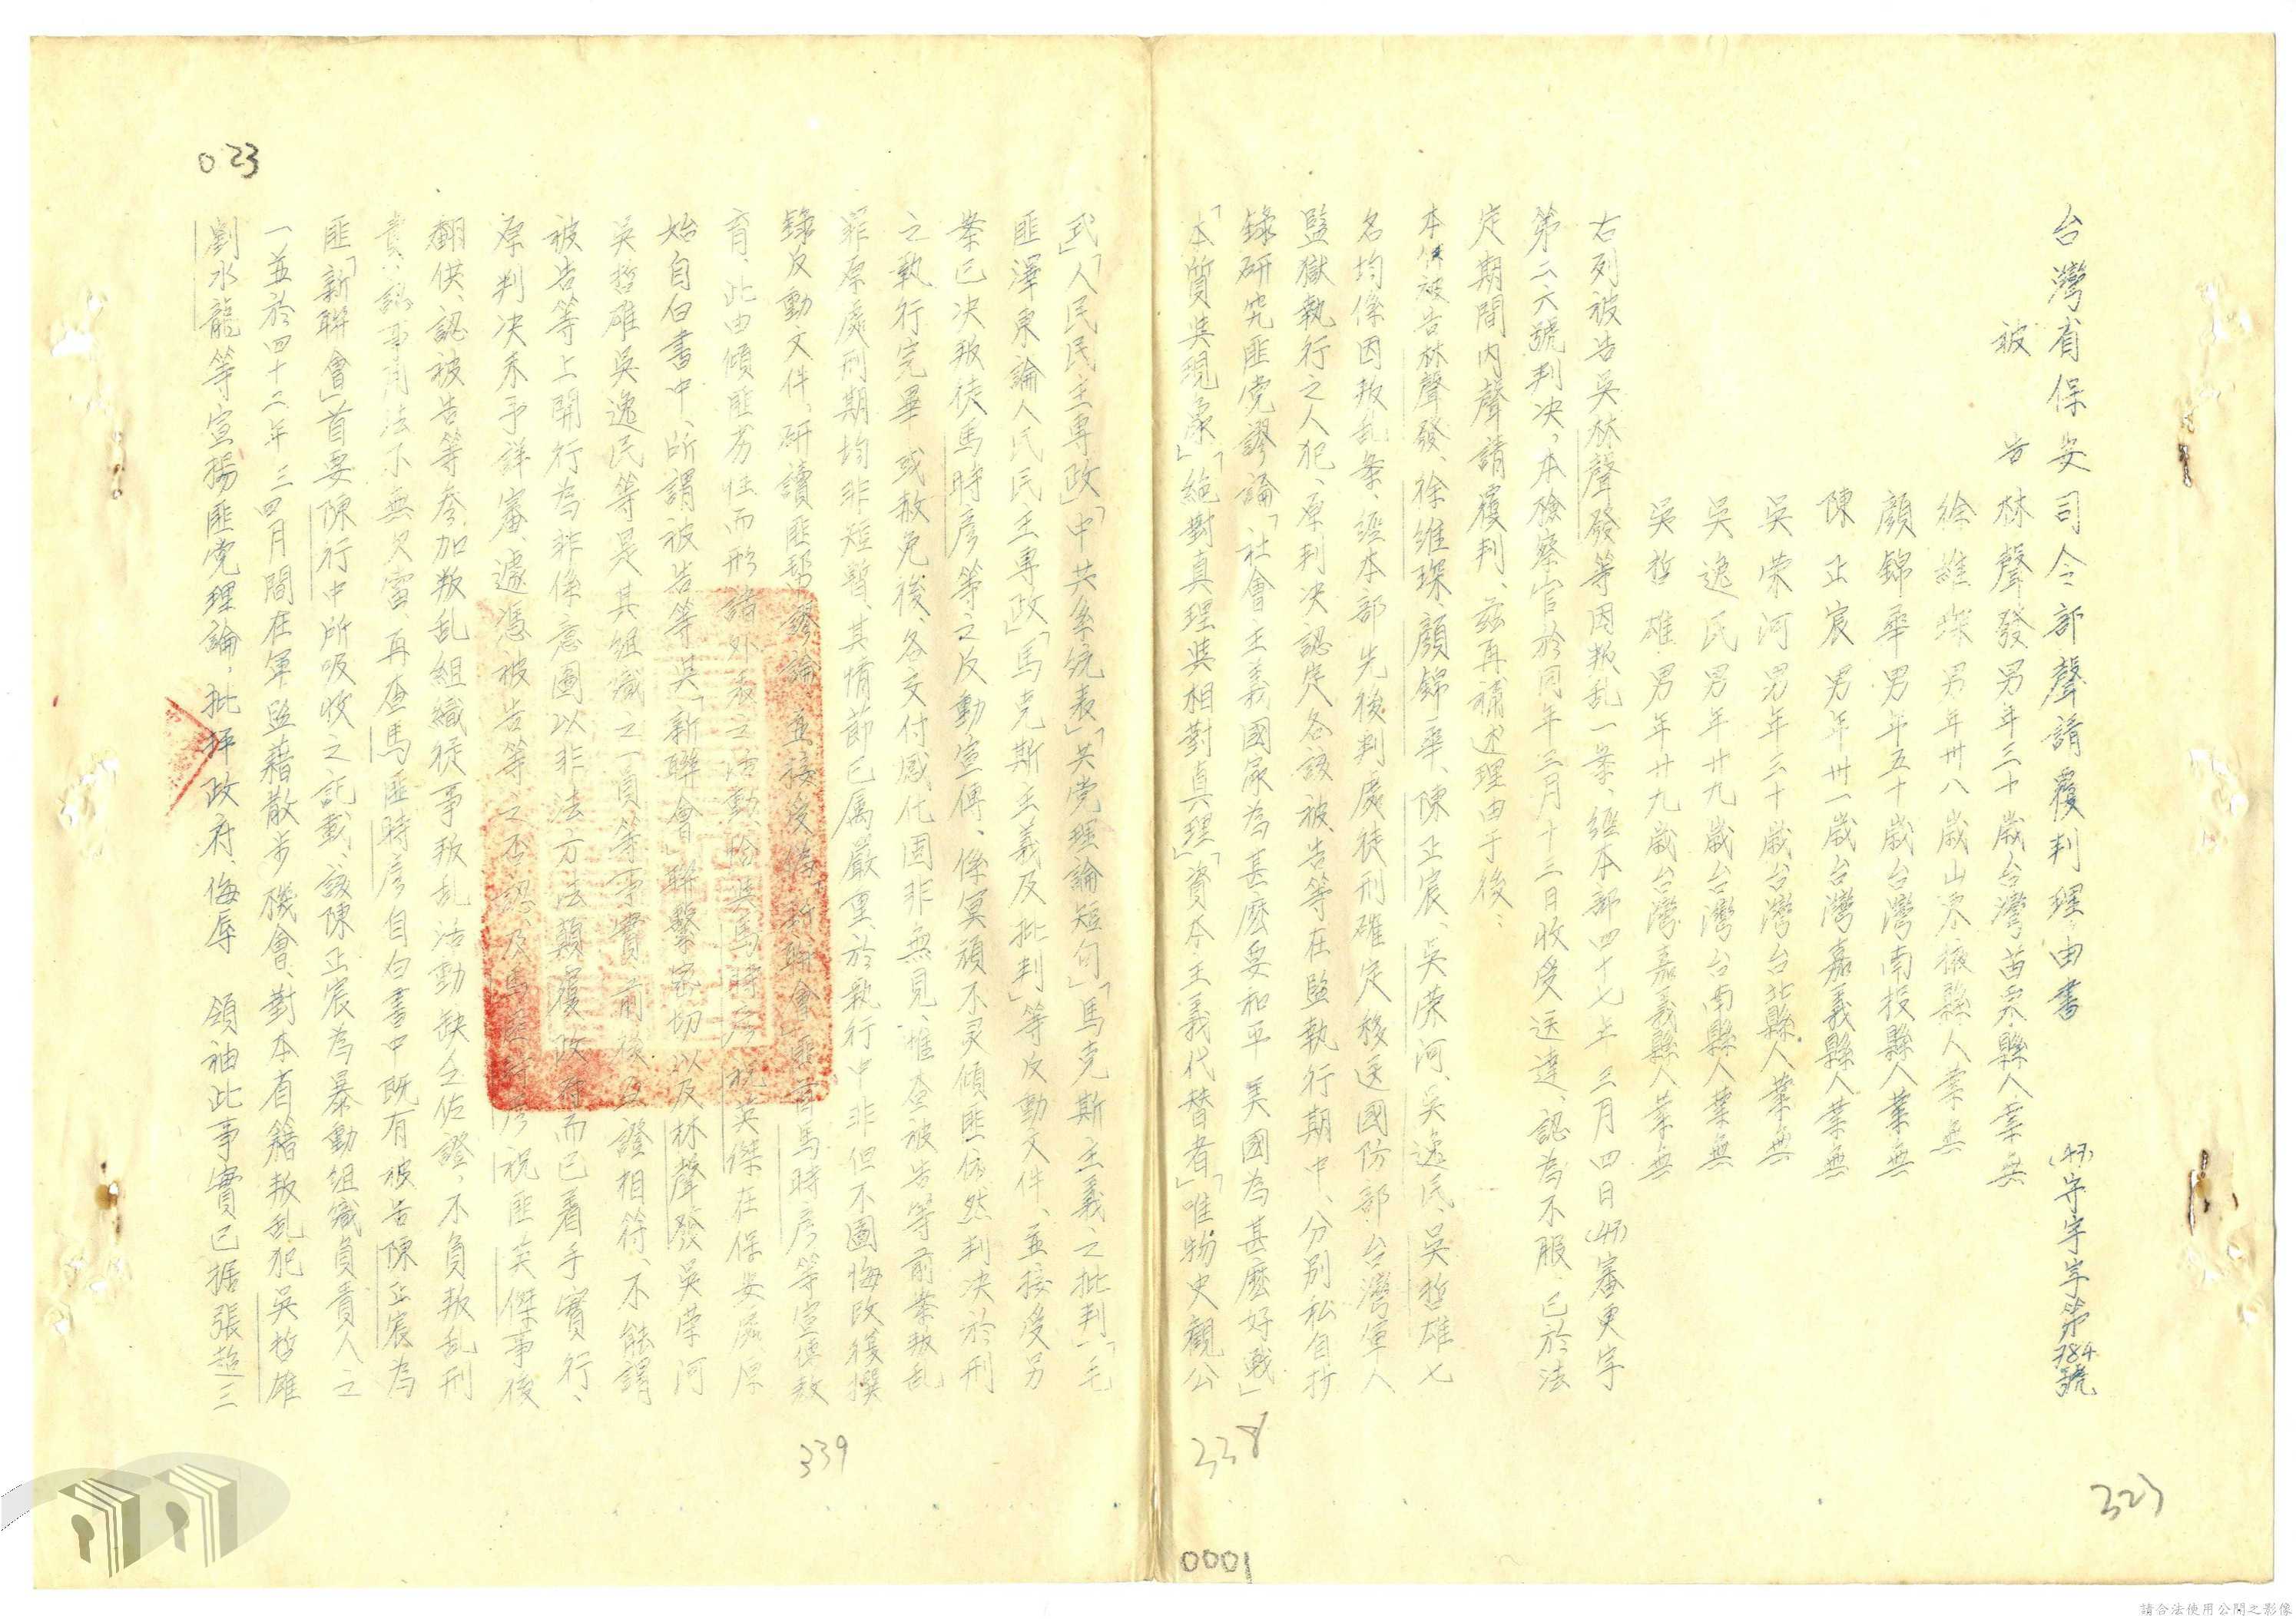 台灣省保安司令部聲請覆判理由書
(47)守字字第784號
被告林聲發男年三十歲台灣苗栗縣人業無
徐維琛男年卅八歲山東掖縣人業無
顏錦華男年五十歲台灣南投縣人業無
陳正宸男年卅一歲台灣嘉義縣人業無
吳荣河男年三十歲台灣台北縣人業無
吳逸民男年廿九歲台灣台南縣人業無
吳哲雄男年廿九歲台灣嘉義縣人業無
右列被告吳林聲發等因叛乱一案、經本部四十七年三月四日(47)審更字
第二六號判决，本檢察官於同年三月十三日收受送達、認為不服、已於法
定期間內聲請覆判、茲再補述理由于後：
本件被告林聲發、徐維琛、顏錦華、陳正宸、吳荣河、吳逸民、吳哲雄七
名均係因叛乱案、經本部先後判處徒刑確定移送國防部台灣軍人
監獄執行之人犯、原判决認定各該被告等在監執行期中、分別私自抄
錄研究匪党謬論「社會主義國家為甚麽要和平美國為甚麽好戰」
「本質與現象」「絕對真理與相對真理」「資本主義代替者」「唯物史觀公
式」「人民民主專政」「中共系統表」「共党理論短句」「馬克斯主義之批判」「毛
匪澤東論人民民主專政」「馬克斯主義及批判」等反動文件、並接受另
案已决叛徒馬時彥等之反動宣傳、係冥頑不灵傾匪依然判决於刑
之執行完畢或赦免後、各交付感化固非無見、惟查被告等前業叛乱
罪原處刑期均非短暫、其情節已属嚴重、於執行中非但不圖悔改復撰
錄反動文件、研讀匪幫謬論並接受偽「新聯會」匪首馬時彥等宣傳教
育、此由傾匪劣性而形諸外表之活動、恰與馬時彥祝英傑在保安處原
始自白書中、所謂被告等吳「新聯會」聯繫密切以及林聲發吳荣河
吳哲雄吳逸民等是其組織之一員等事實、前後互證相符、不能謂
被告等上開行為非係意圖以非法方法顛覆政府而已着手實行、
原判决未予詳審、遽憑被告等之否認、及馬匪時彥祝匪英傑事後
翻供、認被告等参加叛乱組織從事叛乱活動缺乏佐證，不負叛乱刑
責、認事用法不無欠當、再查馬匪時彥自白書中既有被告陳正宸為
匪「新聯會」首要陳行中所吸收之記載、該陳正宸為暴動組織負責人之
一並於四十二年三四月間在軍監藉散步機會、對本省籍叛乱犯吳哲雄
劉水龍等宣揚匪党理論，批評政府、侮辱　領袖此事實已据張超三
023
339
338
323
0001
請合法使用公開之影像